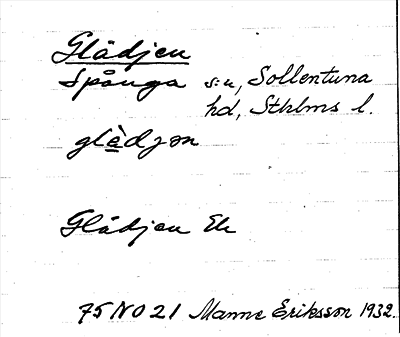 Glädjen
Spånga s:n, Sollentuna
hd, Sthlms l.
glädjen
Glädjen Ek
75 NO 21 Manne Eriksson 1932.